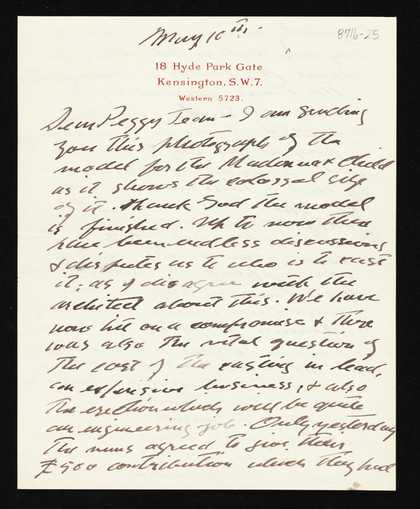 May 10th.
8716-25
18 Hyde Park Gate
Kensington, S.W.7.
Western 5723.
Dear Peggy Jean - I am sending
you this photograph of the
model for the Madonna & Child
as it shows the colossal size
of it. Thank God the model
is finished. Up to now there
have been endless discussions
& disputes as to who is to cast
it; as I disagree with the
architect about this. We have
now hit on a compromise & there
was also the vital question of
the cost of the casting in lead,
an expensive business, & also
the erection which will be quite
an engineering job. Only yesterday
the nuns agreed to give their
£500 contribution which they had